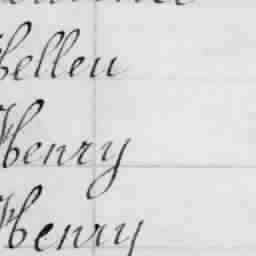 Hellen
Henry
Henry